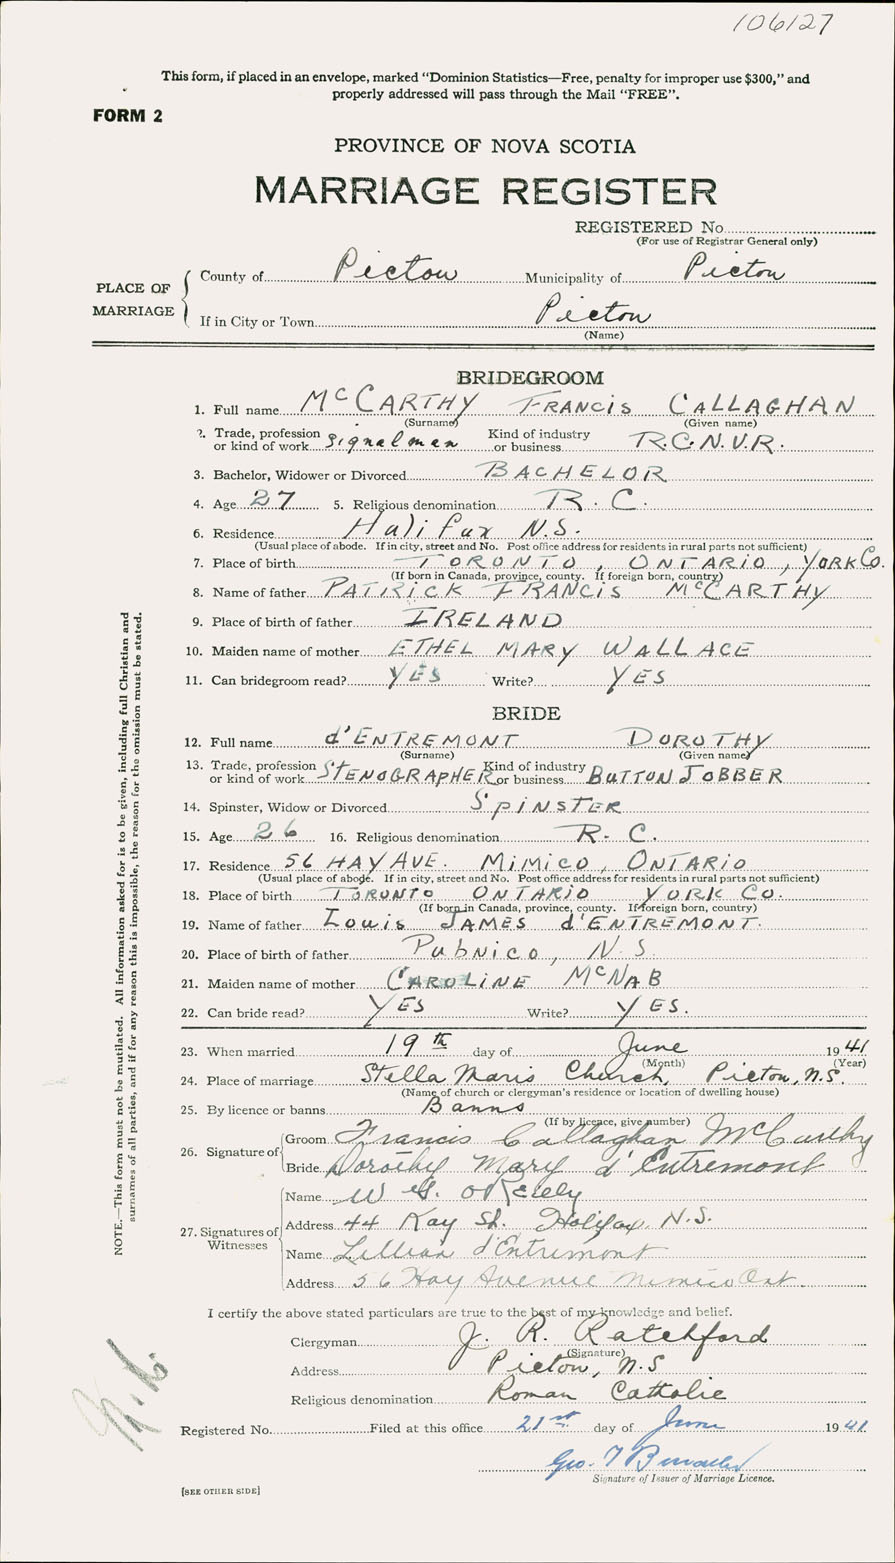 106127
This form, if placed in an envelope, marked “Dominion Statistics—Free, penalty for improper use $300,” and
properly addressed will pass through the Mail “FREE”.
FORM 2
PROVINCE OF NOVA SCOTIA
MARRIAGE REGISTER
REGISTERED No.
(For use of Registrar General only)
PLACE OF MARRIAGE
County of Pictou Municipality of Pictou
If in City or Town Pictou
(Name)
BRIDEGROOM
1. Full name McCARTHY FRANCIS CALLAGHAN
(Surname) (Given name)
2. Trade, profession or kind of work signalman Kind of industry or business R.C.N.V.R.
3. Bachelor, Widower or Divorced BACHELOR
4. Age 27 5. Religious denomination R.C.
6. Residence Halifax N.S.
(Usual place of abode. If in city, street and No. Post office address for residents in rural parts not sufficient)
7. Place of birth TORONTO, ONTARIO, YORK Co.
(If born in Canada, province, county. If foreign born, country)
8. Name of father PATRICK FRANCIS McCARTHY
9. Place of birth of father IRELAND
10. Maiden name of mother ETHEL MARY WALLACE
11. Can bridegroom read? YES Write? YES
BRIDE
12. Full name d'ENTREMONT DOROTHY
(Surname) (Given name)
13. Trade, profession or kind of work STENOGRAPHER Kind of industry or business BUTTON JOBBER
14. Spinster, Widow or Divorced SPINSTER
15. Age 26 16. Religious denomination R.C.
17. Residence 56 HAY AVE. MIMICO, ONTARIO
(Usual place of abode. If in city, street and No. Post office address for residents in rural parts not sufficient)
18. Place of birth TORONTO ONTARIO YORK CO.
(If born in Canada, province, county. If foreign born, country)
19. Name of father LOUIS JAMES d'ENTREMONT.
20. Place of birth of father PUBNICO, N.S.
21. Maiden name of mother CAROLINE McNAB
22. Can bride read? YES Write? YES.
23. When married 19th day of June 1941
(Month) (Year)
24. Place of marriage Stella Maris Church, Pictou, N.S.
(Name of church or clergyman's residence or location of dwelling house)
25. By licence or banns Banns
(If by licence, give number)
26. Signature of
Groom Francis Callaghan McCarthy
Bride Dorothy Mary d'Entremont
27. Signatures of Witnesses
Name W. G. O'Reilly
Address 44 Kay St. Halifax, N.S.
Name Lillian d'Entremont
Address 56 Hay Avenue Mimico Ont.
I certify the above stated particulars are true to the best of my knowledge and belief.
Clergyman J. R. Ratchford
(Signature)
Address Pictou, N.S
Religious denomination Roman Catholic
Registered No. Filed at this office 21st day of June 1941
Geo. T
Signature of Issuer of Marriage Licence.
[SEE OTHER SIDE]
NOTE.—This form must not be mutilated. All information asked for is to be given, including full Christian and
surnames of all parties, and if for any reason this is impossible, the reason for the omission must be stated.